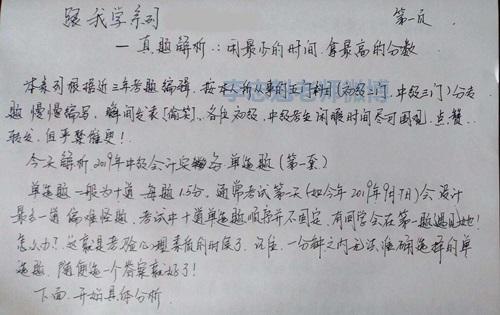 跟我学系列
第一页
一真题解析:用最少的时间,拿最高的分数
本系列根据近三年考题编辑,按本人所从事的五门科目(初级二门,中级三门)分专
题慢慢编写,瞬间发表[偷笑],各位初级、中级考生闲暇时间尽可围观、点赞、
转发,但严禁催更!
今天解析2019年中级会计实务 单选题(第一套)
单选题一般为十道,每题1.5分,通常考试第一天(如今年2019年9月7日)会设计
最多一道偏难怪题,考试中十道单选题顺序并不固定,有同学会在第一题遇见她!
怎么办?这就是考验心理素质的时候了,记住,一分钟之内无法准确选择的单
选题,随便选一个答案就好了!
下面,开始具体分析.
老师微博